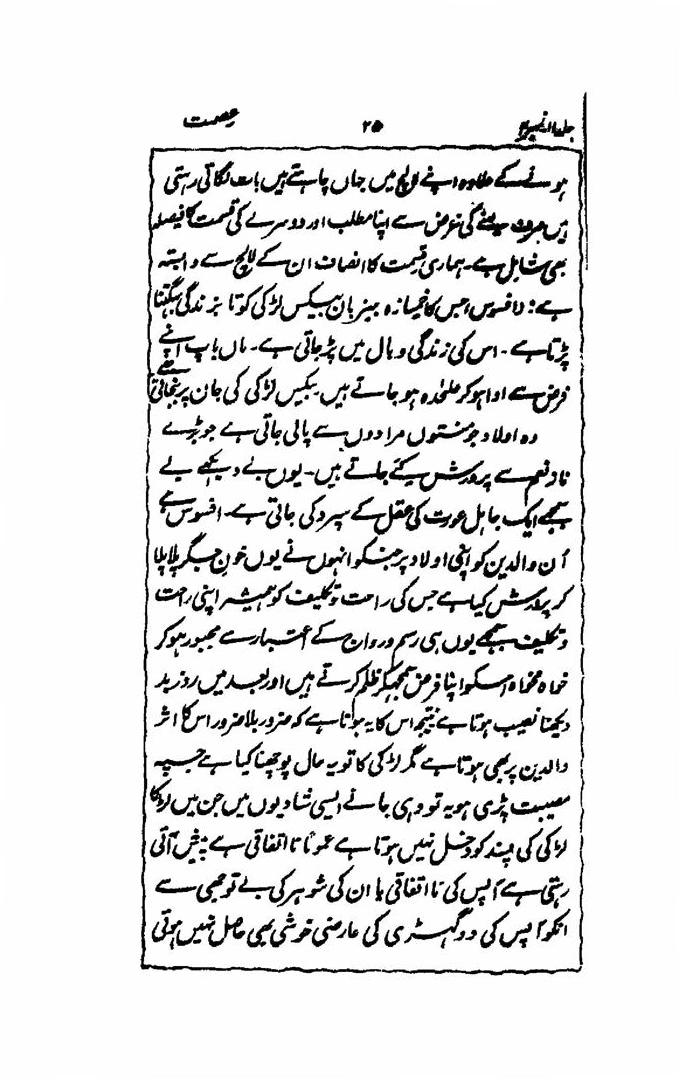 عصمت ۲۵ جلد ۱۱ نمبر
ہونے کے علاوہ اپنے لالچ میں جہاں چاہتے ہیں بات لگاتی رہتی
ہیں صرف کی غرض سے اپنا مطلب اور دوسرے کی قسمت کا فیصلہ
بھی شامل ہے۔ ہماری قسمت کا انصاف ان کے لالچ سے وابستہ
ہے! افسوس اس کا خمیازہ بیزبان بیکس لڑکی کو تا بزندگی بھگتنا
پڑتا ہے۔ اس کی زندگی وبال میں پڑ جاتی ہے۔ ماں باپ اپنے
فرض سے ادا ہو کر علیٰحدہ ہو جاتے ہیں بیکس لڑکی کی جان پر بنجاتی ہے
وہ اولاد جو منتوں مرادوں سے پالی جاتی ہے جو بڑے
ناز نعم سے پرورش کئے جاتے ہیں۔ یوں بے دیکھے بے
سمجھے ایک جاہل عورت کی عقل کے سپرد کی جاتی ہے۔ افسوس ہے
اُن والدین کو اپنی اولاد پر جنکو انہوں نے یوں خون جگر پلا پلا
کر پرورش کیا ہے جس کی راحت و تکلیف کو ہمیشہ اپنی راحت
و تکلیف سمجھے یوں ہی رسم و رواج کے اعتبار سے مجبور ہو کر
خواہ مخواہ اسکو اپنا فرض سمجھکر ظلم کرتے ہیں اور بعد میں روز بد
دیکھنا نصیب ہوتا ہے نتیجہ اس کا یہ ہوتا ہے کہ ضرور بلا ضرور اس کا اثر
والدین پر بھی ہوتا ہے مگر لڑکی کا تو یہ حال پوچھنا کیا ہے جسپہ
مصیبت پڑی ہو یہ تو وہی جانے ایسی شادیوں میں جن میں لڑکا
لڑکی کی پسند کو دخل نہیں ہوتا ہے عموماً نا اتفاقی ہے پیش آتی
رہتی ہے آپس کی نا اتفاقی یا ان کی شوہر کی بے توجہی سے
انکو آپس کی دو گھڑی کی عارضی خوشی بھی حاصل نہیں ہوتی